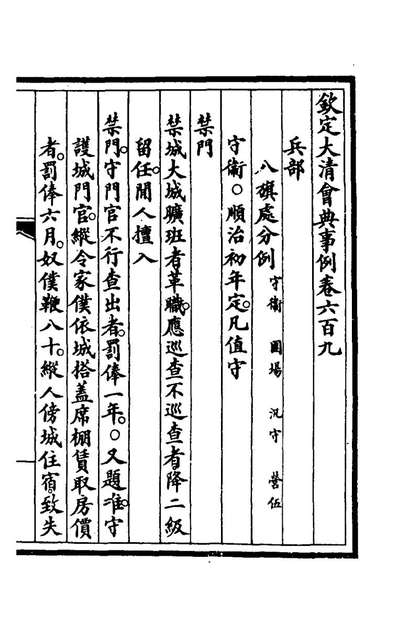 欽定大清會典事例卷六百九
兵部
八旗處分例 守衛 圍場 汛守 營伍
守衛○順治初年定。凡值守
禁門
禁城大城曠班者革職。應巡查不巡查者降二級
留任。閒人擅入
禁門。守門官不行查出者。罰俸一年。○又題准。守
護城門官。縱令家僕依城搭蓋席棚賃取房價
者。罰俸六月。奴僕鞭八十。縱人傍城住宿致失